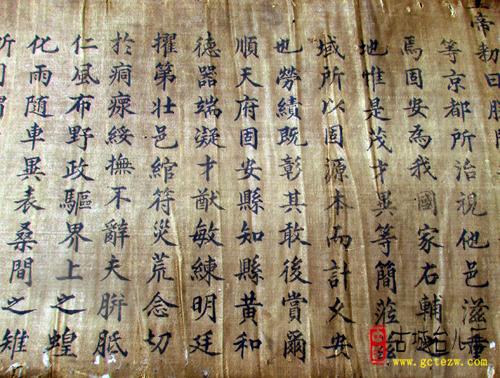 帝勅曰朕
等京都所治視他邑滋重
焉固安為我國家右輔
地惟是茂才異等簡蒞
域所以固源本而計久安
也勞績既彰其敢後賞爾
順天府固安縣知縣黃和
德器端凝才猷敏練明廷
擢第壮邑綰符災荒念切
於痌瘝綏撫不辭夫胼胝
仁風布野政驅界上之蝗
化雨隨車異表桑間之雉
www.gctezw.com